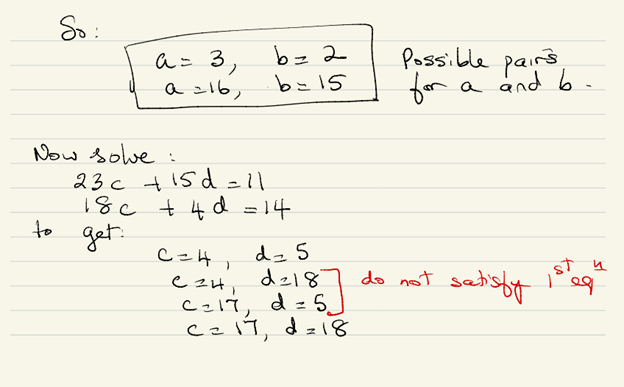 So:
a = 3, b = 2
a = 16, b = 15
Possible pairs
for a and b.
Now solve:
23c + 15d = 11
18c + 4d = 14
to get:
c = 4, d = 5
c = 4, d = 18
c = 17, d = 5
do not satisfy 1st eqn
c = 17, d = 18